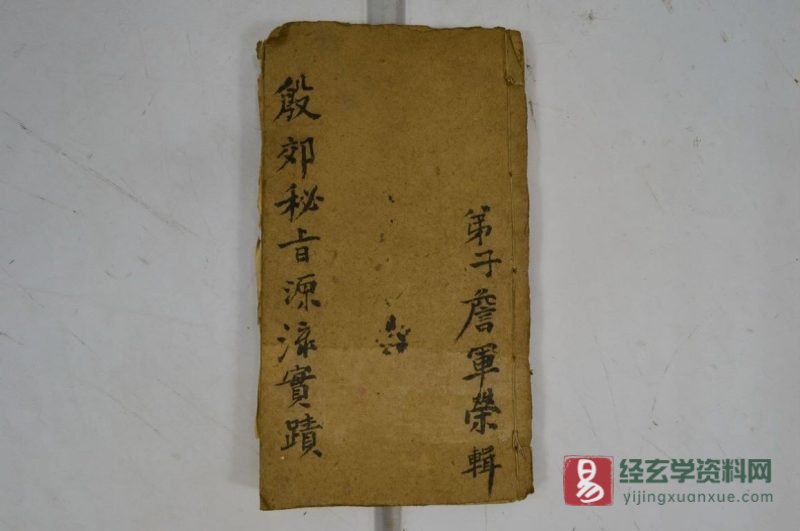 弟子詹軍榮輯
殷郊秘旨源流實蹟
易
经玄学资料网
yijingxuanxue.com